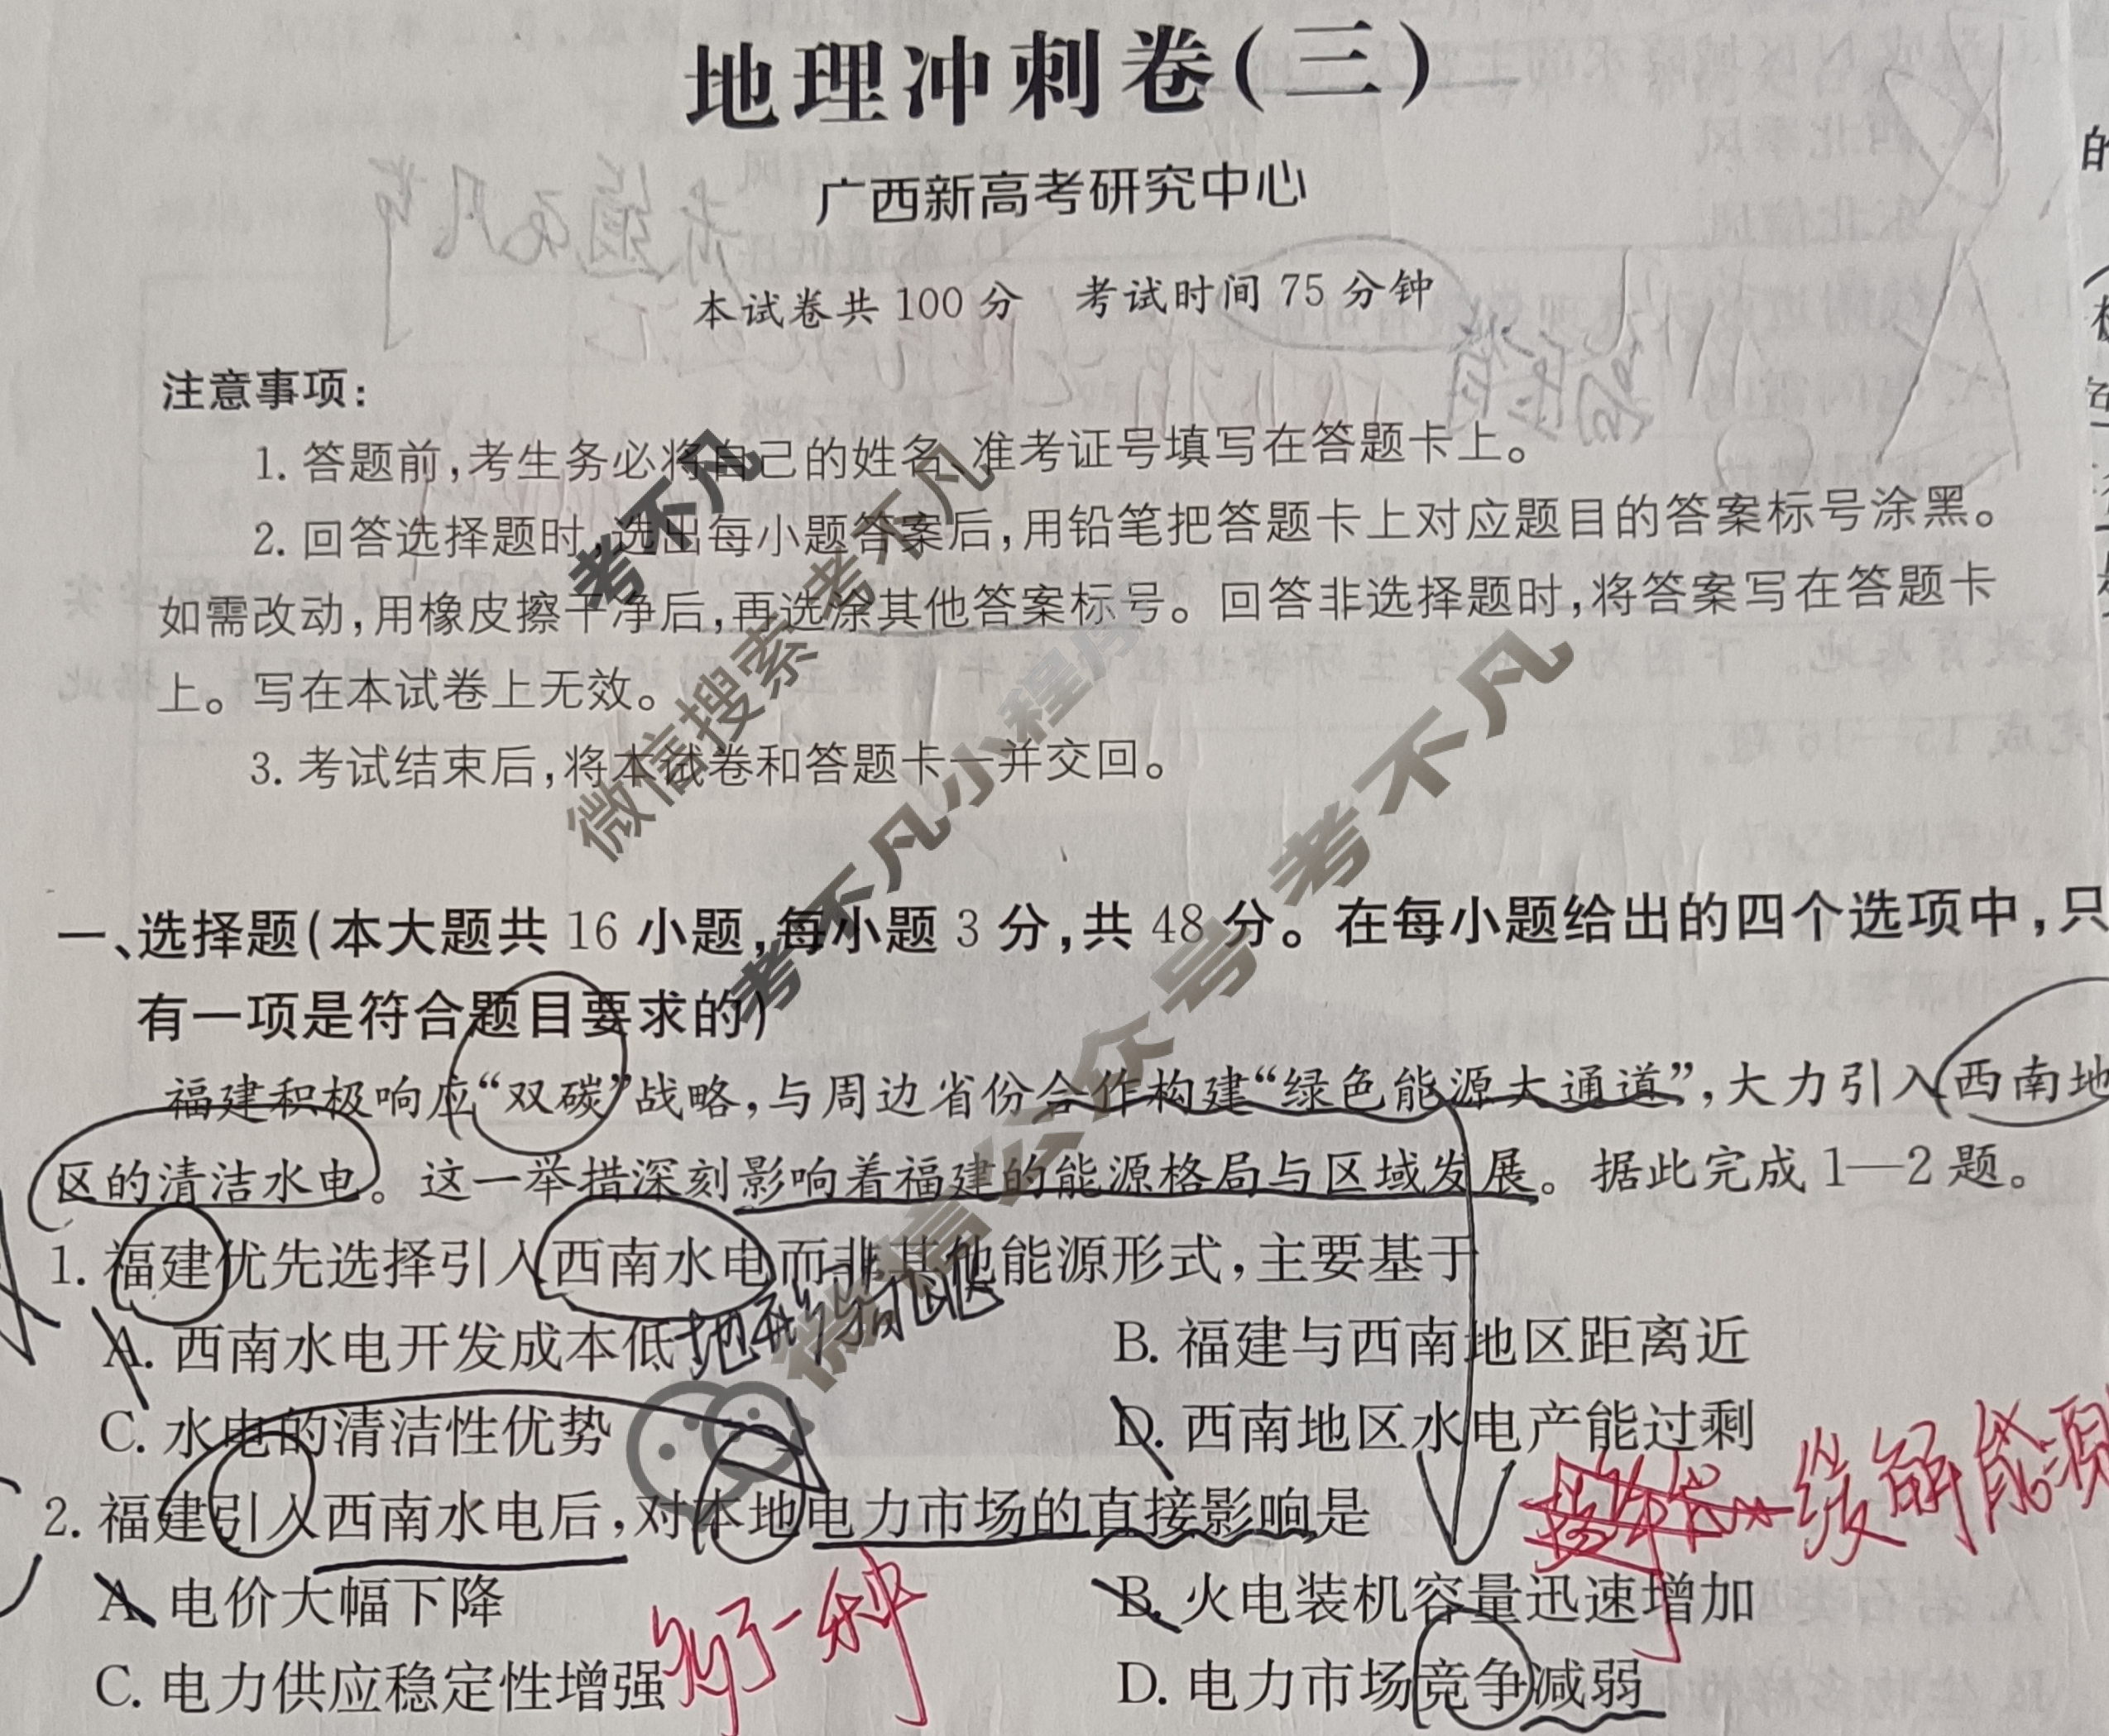 地理冲刺卷(三)
广西新高考研究中心
本试卷共 100 分 考试时间 75 分钟
注意事项:
1. 答题前,考生务必将自己的姓名、准考证号填写在答题卡上。
2. 回答选择题时,选出每小题答案后,用铅笔把答题卡上对应题目的答案标号涂黑。
如需改动,用橡皮擦干净后,再选涂其他答案标号。回答非选择题时,将答案写在答题卡
上。写在本试卷上无效。
3. 考试结束后,将本试卷和答题卡一并交回。
考不凡
微信搜索 考不凡
考不凡小程序
微信公众号 考不凡
一、选择题(本大题共 16 小题,每小题 3 分,共 48 分。在每小题给出的四个选项中,只
有一项是符合题目要求的)
福建积极响应“双碳”战略,与周边省份合作构建“绿色能源大通道”,大力引入西南地
区的清洁水电。这一举措深刻影响着福建的能源格局与区域发展。据此完成 1—2 题。
1. 福建优先选择引入西南水电而非其他能源形式,主要基于
A. 西南水电开发成本低
B. 福建与西南地区距离近
C. 水电的清洁性优势
D. 西南地区水电产能过剩
缓解能源
2. 福建引入西南水电后,对本地电力市场的直接影响是
A. 电价大幅下降
B. 火电装机容量迅速增加
C. 电力供应稳定性增强
多了一种
D. 电力市场竞争减弱
的